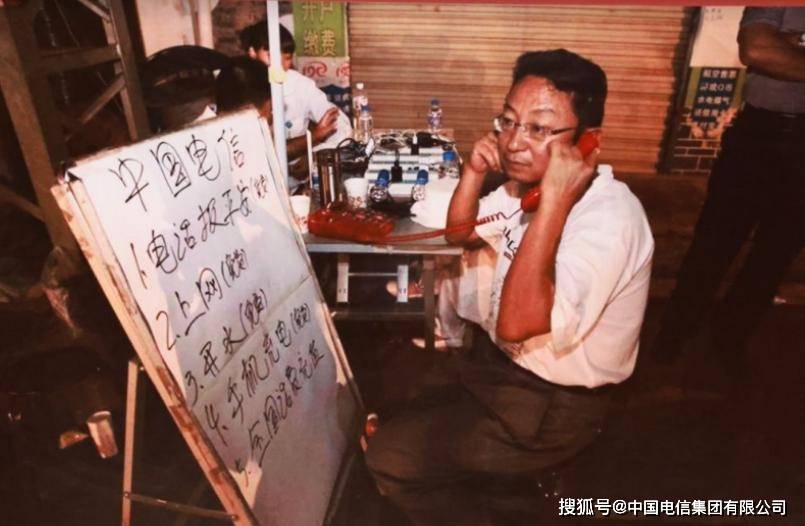 开户
缴费
中国电信
1.电话报平安(免费)
2.上网(免费)
3.开水(免费)
4.手机充电(免费)
5.全国话费充值
航空售票
水电煤气
搜狐号@中国电信集团有限公司